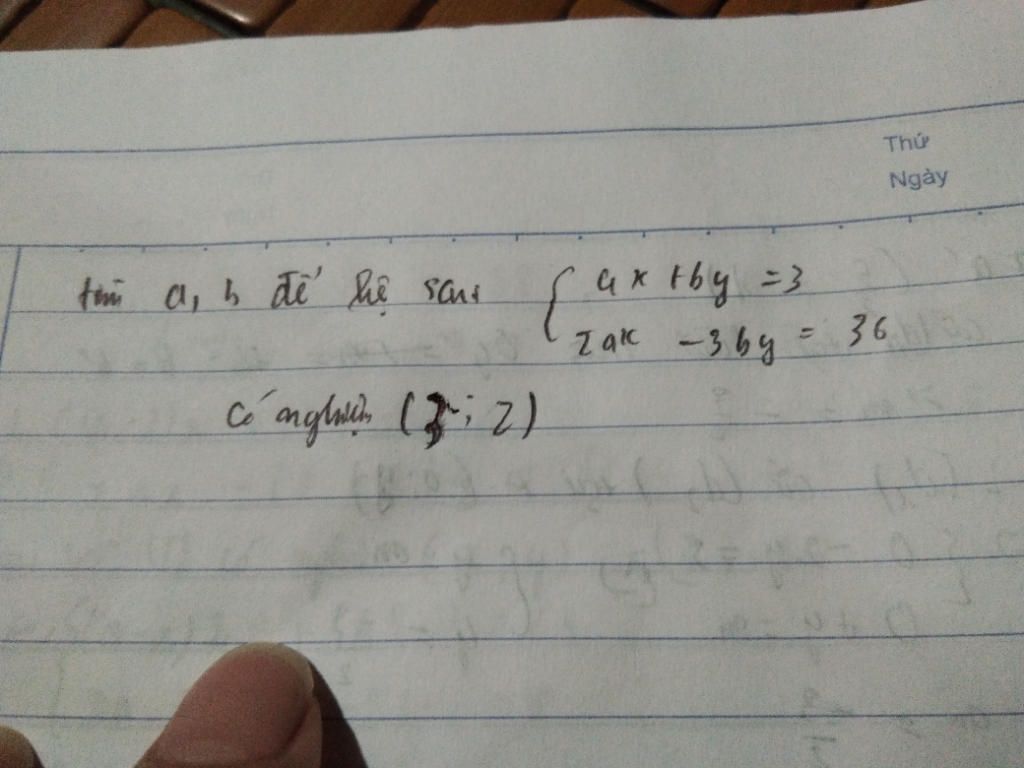 Thứ
Ngày
tìm a, b để hệ sau { ax + by = 3
2ax - 3by = 36
có nghiệm ( ; 2)